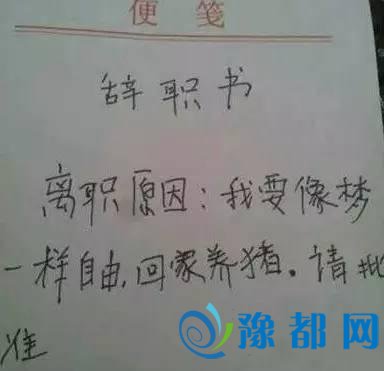 便笺
辞职书
离职原因：我要像梦
一样自由,回家养猪。请批
准
豫都网